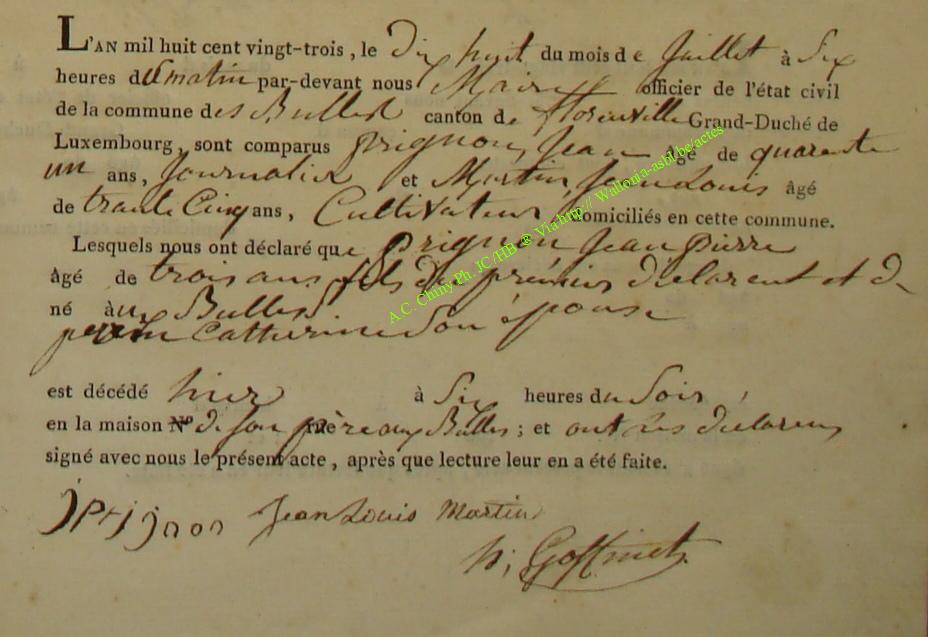 L'AN mil huit cent vingt-trois, le Dix huit du mois de Juillet à Six
heures du matin par-devant nous Maire officier de l'état civil
de la commune des Bulles canton de florenville Grand-Duché de
Luxembourg, sont comparus Prignon, Jean âgé de quarante
un ans, Journalier et Martin, Jean Louis âgé
de trante Cinq ans, Cultivateur, domiciliés en cette commune.
Lesquels nous ont déclaré que Prignon Jean pierre
âgé de trois ans fils du prémier déclarent et d
né aux Bulles
Catherine Son épouse
est décédé hier à Six heures du Soir,
en la maison N° de son père aux Bulles; et ont les déclarens
signé avec nous le présent acte, après que lecture leur en a été faite.
JPrignon Jean Louis Martin
h, Goffinet
A.C. Chiny Ph. JC/HB ® Via http:// Wallonia-asbl.be/actes